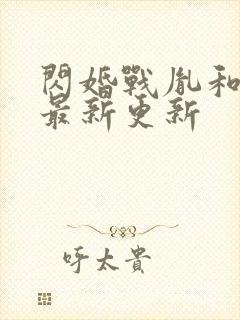 閃婚戰胤和
最新更新
呼太貴